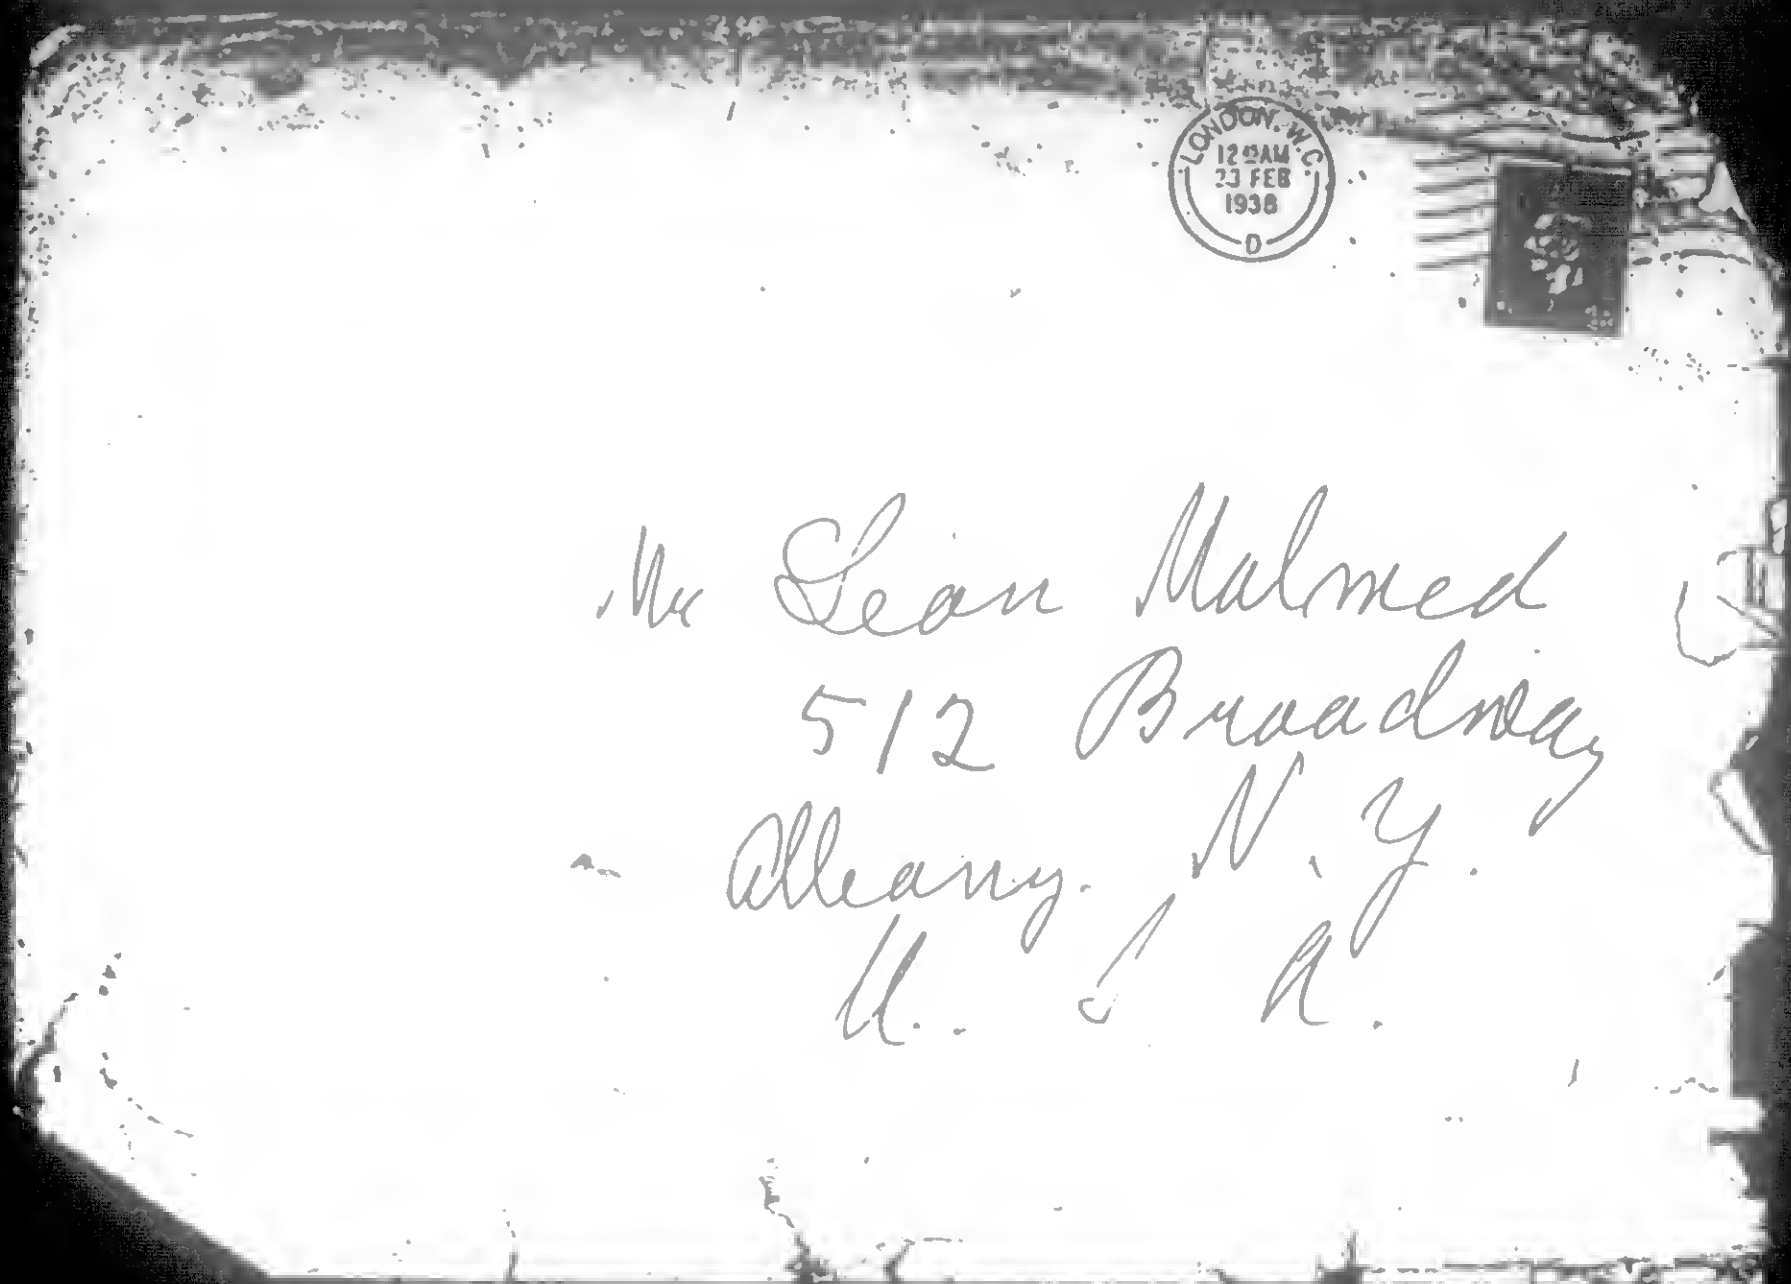 LONDON. W.C.
12 AM
23 FEB
1938
D
Mr Leon Malmed
512 Broadway
Albany. N. Y.
U. S A.